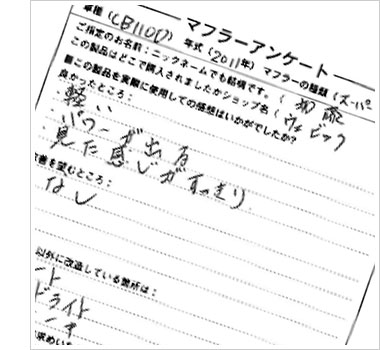 マフラーアンケート
車種（CB1100） 年式（2011年） マフラーの種類（スーパー
ご指定のお名前：ニックネームでも結構です。（
この製品はどこで購入されましたかショップ名（ウィビック
■この製品を実際に使用しての感想はいかがでしたか？
良かったところ：
軽い
パワーが出る
見た感じがすっきり
改善を望むところ：
なし
以外に改造している箇所は：
ート
ドライト